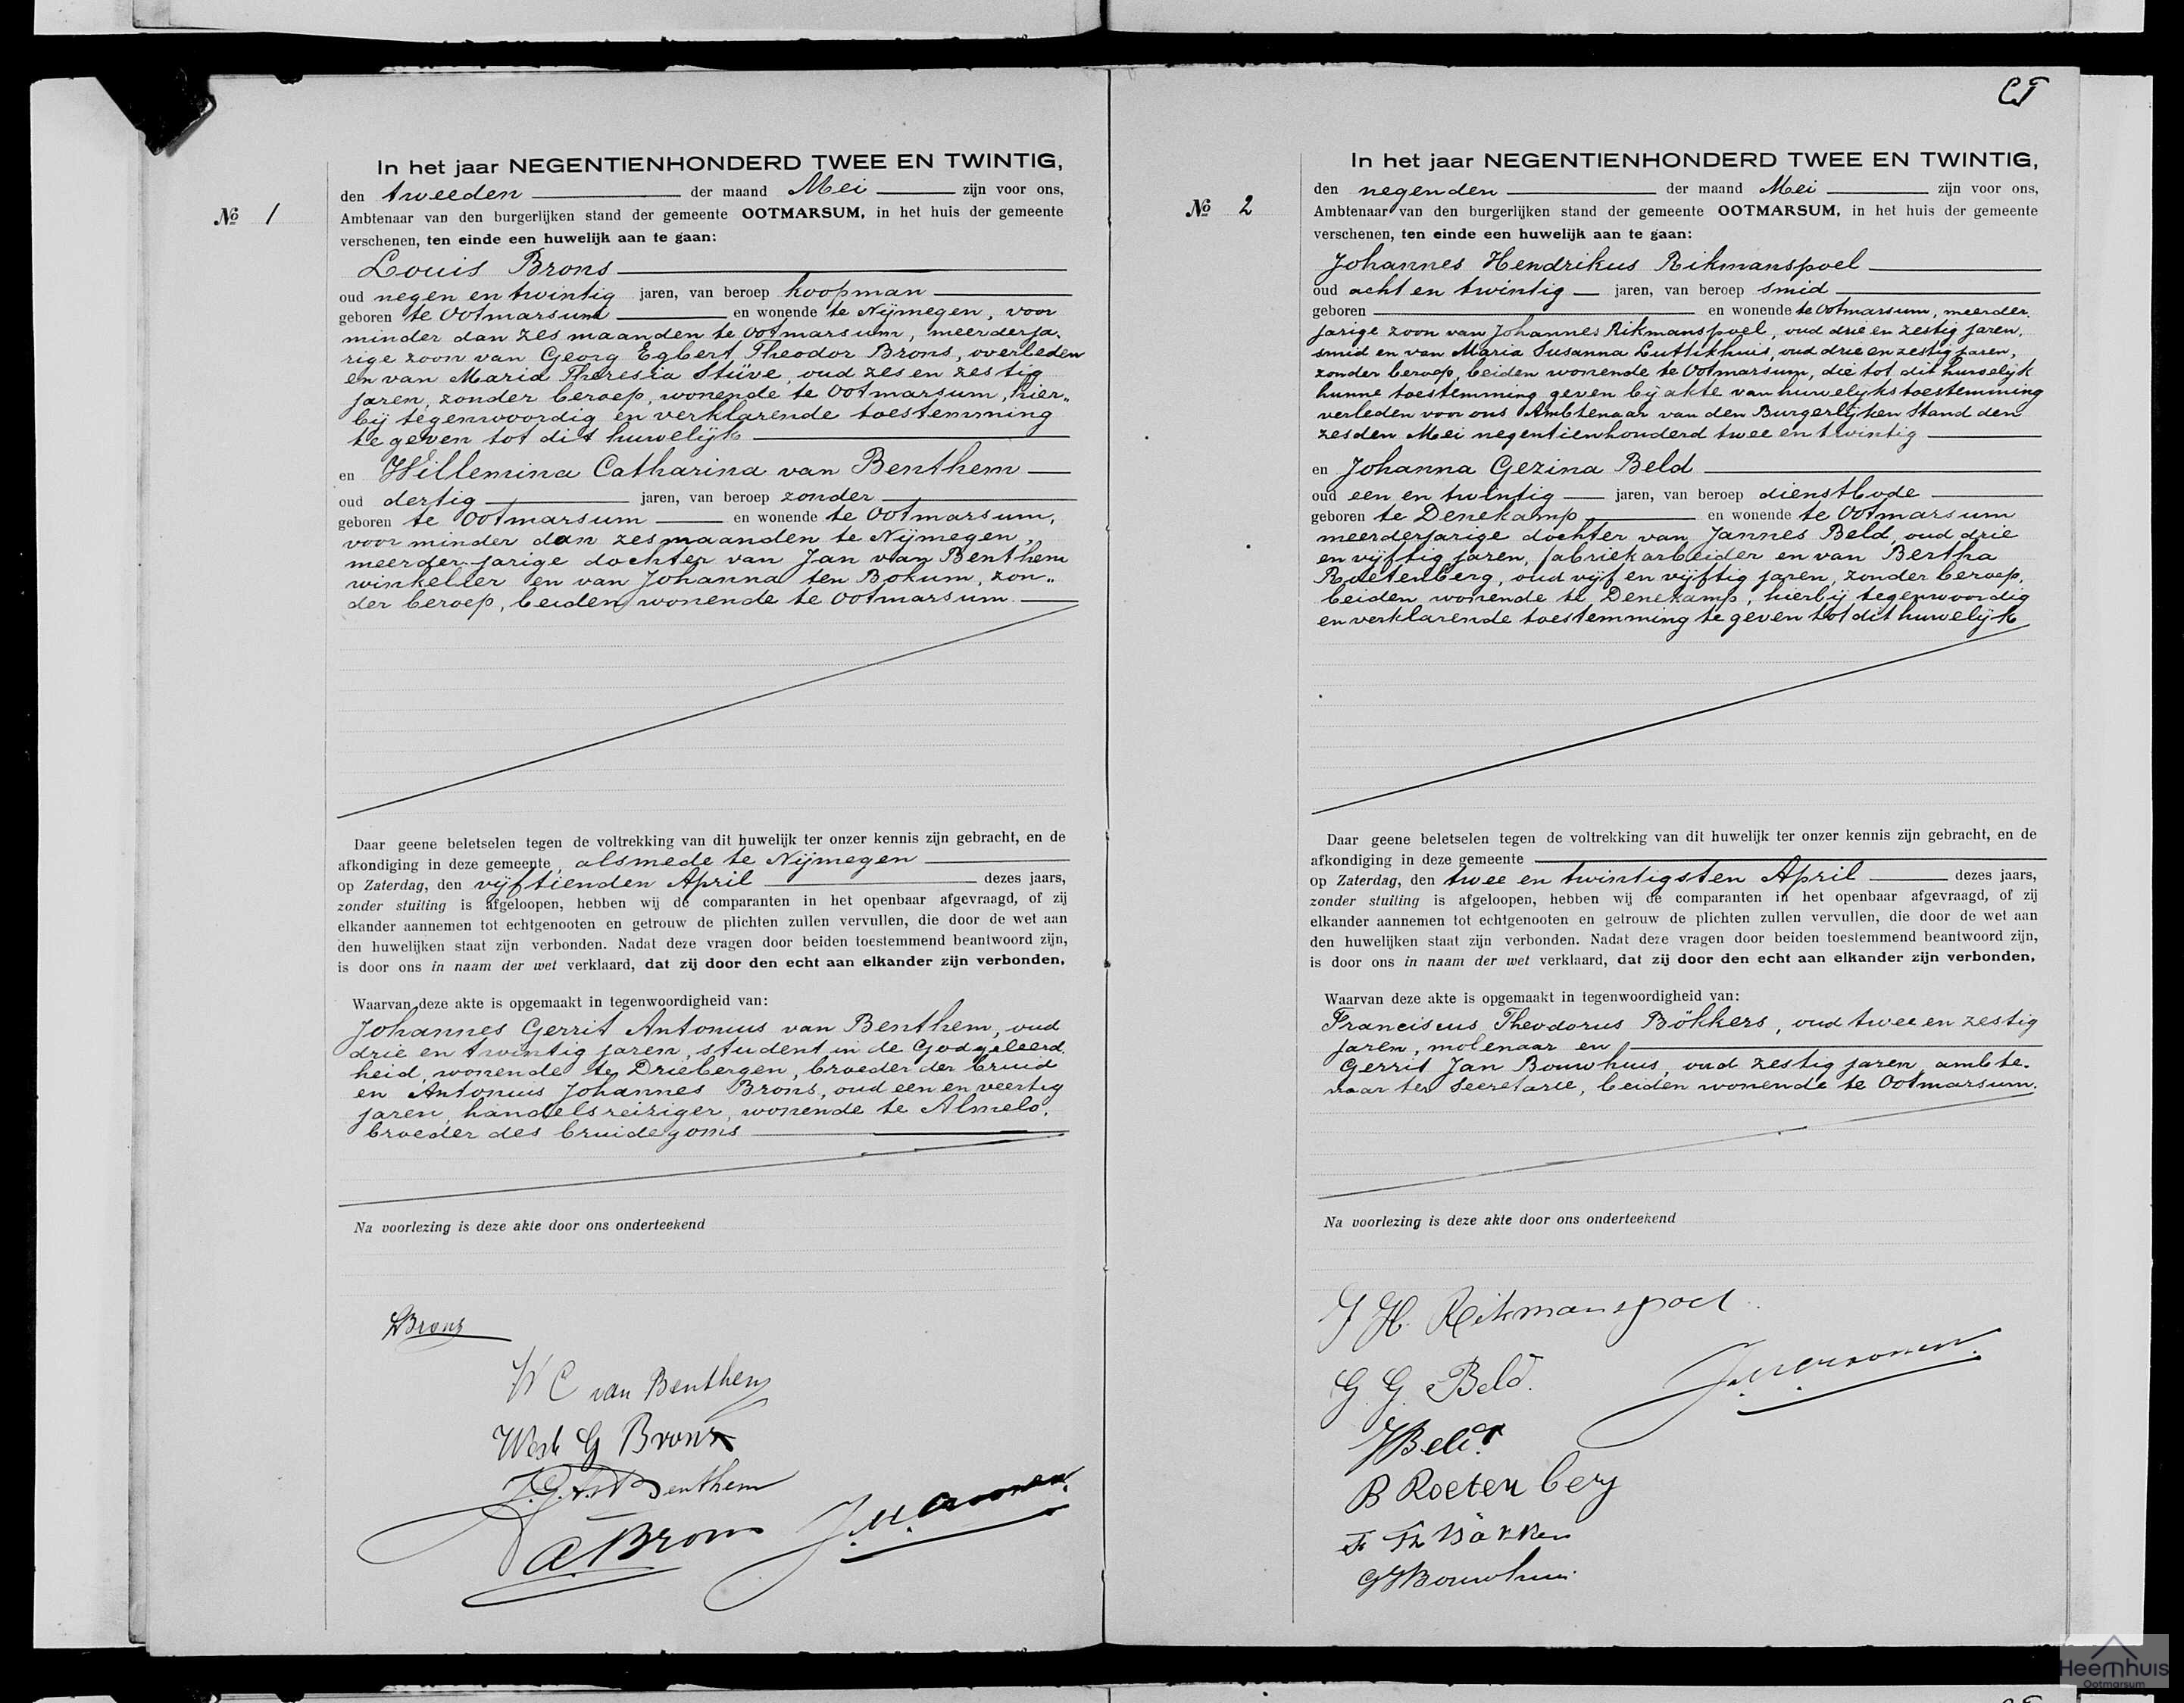 No 1
In het jaar NEGENTIENHONDERD TWEE EN TWINTIG,
den tweeden der maand Mei zijn voor ons,
Ambtenaar van den burgerlijken stand der gemeente OOTMARSUM, in het huis der gemeente
verschenen, ten einde een huwelijk aan te gaan:
Louis Brons
oud negen en twintig jaren, van beroep koopman
geboren te Ootmarsum en wonende te Nijmegen, voor
minder dan zes maanden te Ootmarsum, meerderja-
rige zoon van Georg Egbert Theodor Brons, overleden
en van Maria Theresia Stüve, oud zes en zestig
jaren, zonder beroep, wonende te Ootmarsum, hier„
bij tegenwoordig en verklarende toestemming
te geven tot dit huwelijk
en Willemina Catharina van Benthem
oud dertig jaren, van beroep zonder
geboren te Ootmarsum en wonende te Ootmarsum,
voor minder dan zes maanden te Nijmegen,
meerderjarige dochter van Jan van Benthem
winkelier en van Johanna ten Bokum, zon„
der beroep, beiden wonende te Ootmarsum.
Daar geene beletselen tegen de voltrekking van dit huwelijk ter onzer kennis zijn gebracht, en de
afkondiging in deze gemeente, alsmede te Nijmegen
op Zaterdag, den vijftienden April dezes jaars,
zonder stuiting is afgeloopen, hebben wij de comparanten in het openbaar afgevraagd, of zij
elkander aannemen tot echtgenooten en getrouw de plichten zullen vervullen, die door de wet aan
den huwelijken staat zijn verbonden. Nadat deze vragen door beiden toestemmend beantwoord zijn,
is door ons in naam der wet verklaard, dat zij door den echt aan elkander zijn verbonden,
Waarvan deze akte is opgemaakt in tegenwoordigheid van:
Johannes Gerrit Antonius van Benthem, oud
drie en twintig jaren, student in de Godgeleerd.
heid, wonende te Driebergen, broeder der bruid
en Antonius Johannes Brons, oud een en veertig
jaren, handelsreiziger, wonende te Almelo,
broeder des bruidegoms
Na voorlezing is deze akte door ons onderteekend
LBrons
W C van Benthem
G Brons
Benthem
A Brons
No 2
In het jaar NEGENTIENHONDERD TWEE EN TWINTIG,
den negenden der maand Mei zijn voor ons,
Ambtenaar van den burgerlijken stand der gemeente OOTMARSUM, in het huis der gemeente
verschenen, ten einde een huwelijk aan te gaan:
Johannes Hendrikus Rikmanspoel
oud acht en twintig jaren, van beroep smid
geboren en wonende te Ootmarsum, meerder.
jarige zoon van Johannes Rikmanspoel, oud drie en zestig jaren,
smid en van Maria Susanna Luttikhuis, oud drie en zestig jaren,
zonder beroep, beiden wonende te Ootmarsum, die tot dit huwelijk
hunne toestemming geven bij akte van huwelijkstoestemming
verleden voor ons Ambtenaar van den Burgerlijken Stand den
zesden Mei negentienhonderd twee en twintig
en Johanna Gezina Beld
oud een en twintig jaren, van beroep dienstbode
geboren te Denekamp en wonende te Ootmarsum
meerderjarige dochter van Jannes Beld, oud drie
en vijftig jaren, fabriekarbeider en van Bertha
Roetenberg, oud vijf en vijftig jaren, zonder beroep,
beiden wonende te Denekamp, hierbij tegenwoordig
en verklarende toestemming te geven tot dit huwelijk
Daar geene beletselen tegen de voltrekking van dit huwelijk ter onzer kennis zijn gebracht, en de
afkondiging in deze gemeente
op Zaterdag, den twee en twintigsten April dezes jaars,
zonder stuiting is afgeloopen, hebben wij de comparanten in het openbaar afgevraagd, of zij
elkander aannemen tot echtgenooten en getrouw de plichten zullen vervullen, die door de wet aan
den huwelijken staat zijn verbonden. Nadat deze vragen door beiden toestemmend beantwoord zijn,
is door ons in naam der wet verklaard, dat zij door den echt aan elkander zijn verbonden,
Waarvan deze akte is opgemaakt in tegenwoordigheid van:
Franciscus Theodorus Bökkers, oud twee en zestig
jaren, molenaar en
Gerrit Jan Bouwhuis, oud zestig jaren, ambte.
naar ter Secretarie, beiden wonende te Ootmarsum.
Na voorlezing is deze akte door ons onderteekend
J H. Rikmanspoel
G. G. Beld.
JBeld.
B Roetenberg
GJBouwhuis
Heemhuis
Ootmarsum